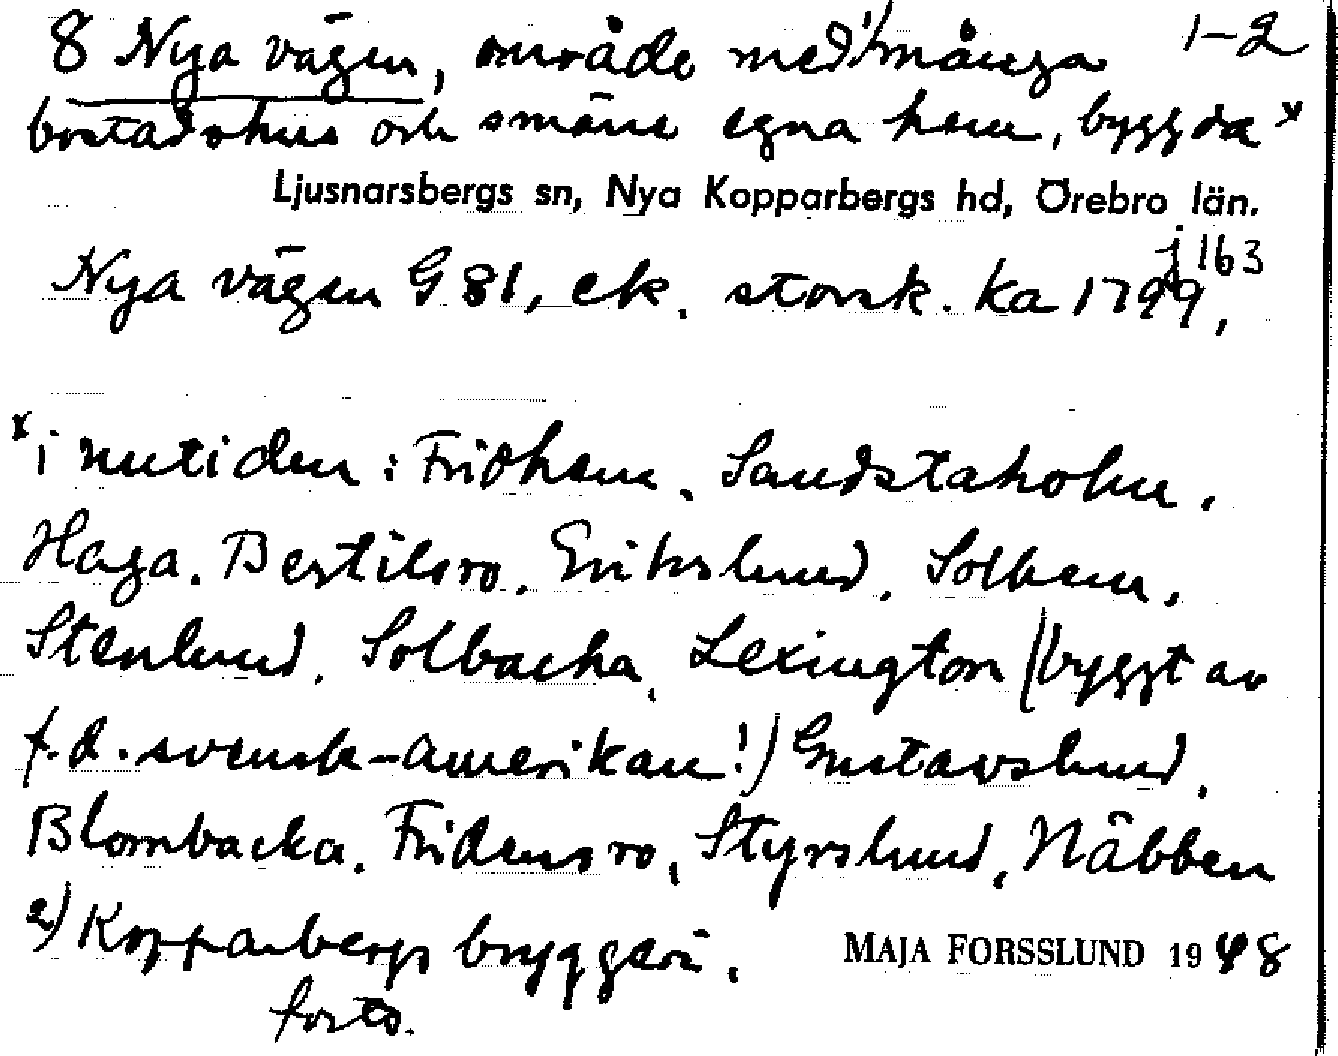 8 Nya vägen, område med 1) många 1-2
bostadshus och smärre egna hem, byggda x
Ljusnarsbergs sn, Nya Kopparbergs hd, Örebro län.
j 163
Nya vägen G 81, ek. storsk. ka 1799,
x i nutiden: Fridhem, Sandstaholm,
Haga, Bertilsro, Erikslund, Solhem,
Stenlund, Solbacka, Lexington (byggt av
f.d. svensk-amerikan!) Gustavslund,
Blombacka, Fridensro, Styrslund, Näbben
2) Kopparbergs bryggeri,
MAJA FORSSLUND 1948
forts.